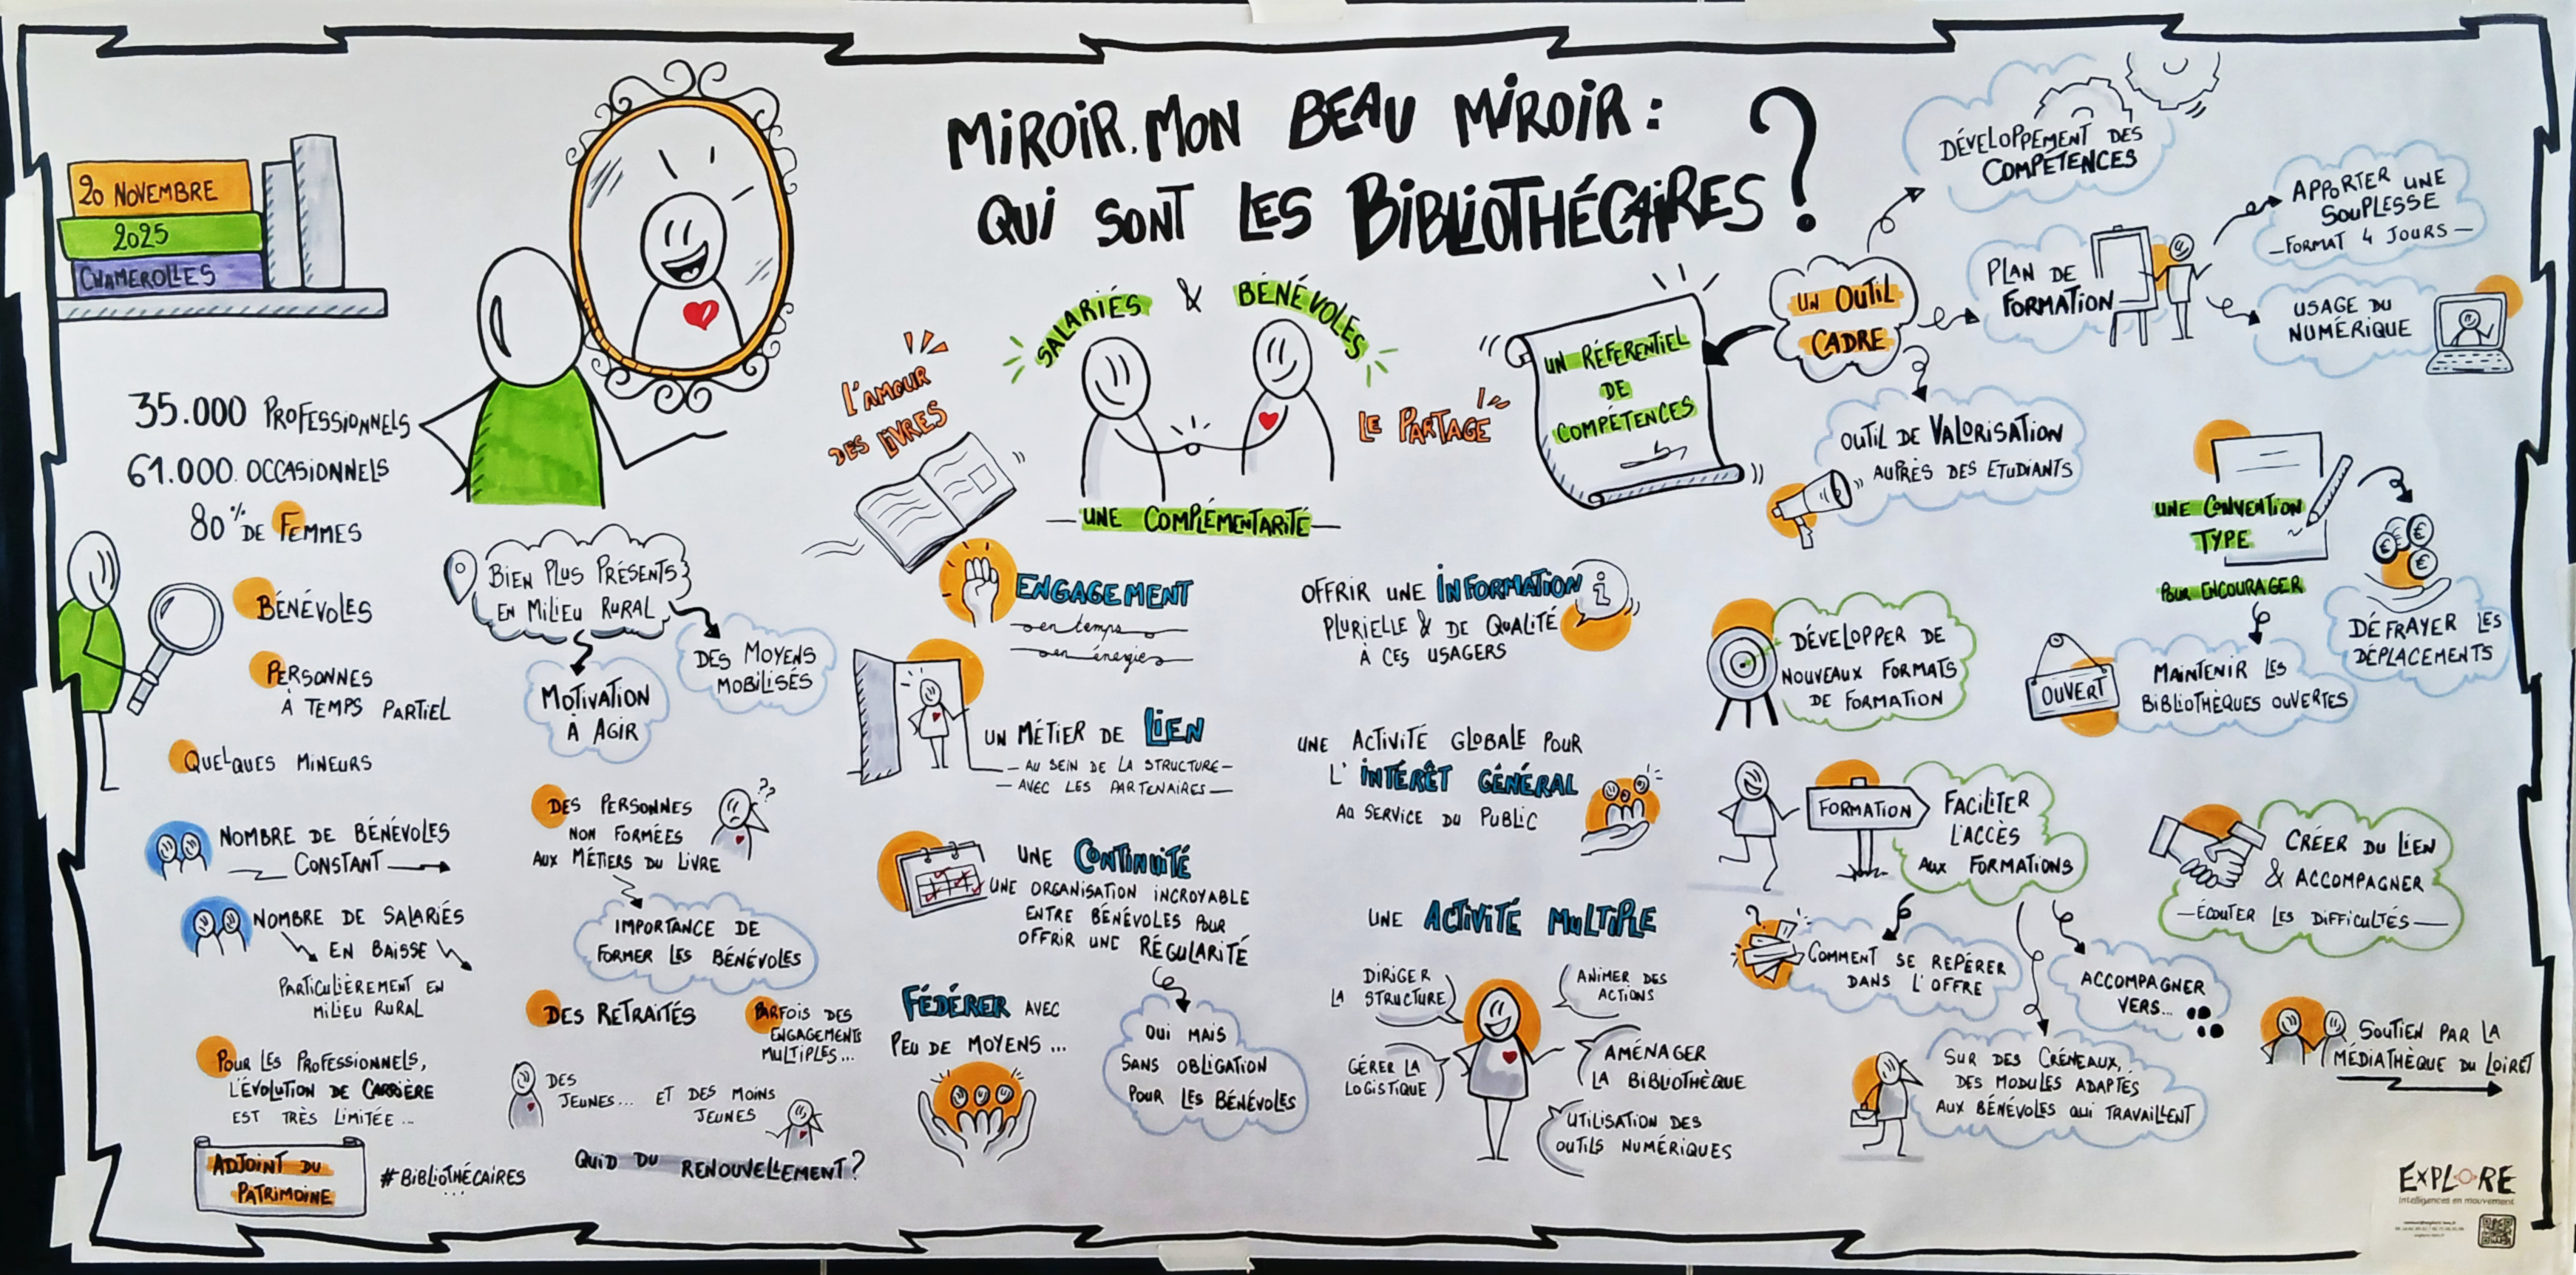 MIROIR, MON BEAU MIROIR :
QUI SONT LES BIBLIOTHÉCAIRES ?
20 NOVEMBRE
2025
CHAMEROLLES
35.000 PROFESSIONNELS
61.000 OCCASIONNELS
80% DE FEMMES
BÉNÉVOLES
PERSONNES
À TEMPS PARTIEL
QUELQUES MINEURS
NOMBRE DE BÉNÉVOLES
CONSTANT
NOMBRE DE SALARIÉS
EN BAISSE
PARTICULIÈREMENT EN
MILIEU RURAL
POUR LES PROFESSIONNELS,
L'ÉVOLUTION DE CARRIÈRE
EST TRÈS LIMITÉE...
ADJOINT DU
PATRIMOINE
#BIBLIOTHÉCAIRES
...
BIEN PLUS PRÉSENTS
EN MILIEU RURAL
DES MOYENS
MOBILISÉS
MOTIVATION
À AGIR
DES PERSONNES
NON FORMÉES
AUX MÉTIERS DU LIVRE
??
IMPORTANCE DE
FORMER LES BÉNÉVOLES
DES RETRAITÉS
PARFOIS DES
ENGAGEMENTS
MULTIPLES...
DES
JEUNES...
ET DES MOINS
JEUNES
QUID DU RENOUVELLEMENT ?
L'AMOUR
DES LIVRES
SALARIÉS & BÉNÉVOLES
LE PARTAGE
UNE COMPLÉMENTARITÉ
ENGAGEMENT
en temps
en énergies
UN MÉTIER DE LIEN
- AU SEIN DE LA STRUCTURE -
- AVEC LES PARTENAIRES -
UNE CONTINUITÉ
UNE ORGANISATION INCROYABLE
ENTRE BÉNÉVOLES POUR
OFFRIR UNE RÉGULARITÉ
OUI MAIS
SANS OBLIGATION
POUR LES BÉNÉVOLES
FÉDÉRER AVEC
PEU DE MOYENS ...
OFFRIR UNE INFORMATION
i
PLURIELLE & DE QUALITÉ
À CES USAGERS
UNE ACTIVITÉ GLOBALE POUR
L'INTÉRÊT GÉNÉRAL
AU SERVICE DU PUBLIC
UNE ACTIVITÉ MULTIPLE
DIRIGER
LA STRUCTURE
ANIMER DES
ACTIONS
GÉRER LA
LOGISTIQUE
AMÉNAGER
LA BIBLIOTHÈQUE
UTILISATION DES
OUTILS NUMÉRIQUES
UN RÉFÉRENTIEL
DE
COMPÉTENCES
UN OUTIL
CADRE
DÉVELOPPEMENT DES
COMPÉTENCES
PLAN DE
FORMATION
APPORTER UNE
SOUPLESSE
- FORMAT 4 JOURS -
USAGE DU
NUMÉRIQUE
OUTIL DE VALORISATION
AUPRÈS DES ETUDIANTS
UNE CONVENTION
TYPE
POUR ENCOURAGER
€ € €
DÉFRAYER LES
DÉPLACEMENTS
OUVERT
MAINTENIR LES
BIBLIOTHÈQUES OUVERTES
DÉVELOPPER DE
NOUVEAUX FORMATS
DE FORMATION
FORMATION
FACILITER
L'ACCÈS
AUX FORMATIONS
?
COMMENT SE REPÉRER
DANS L'OFFRE
ACCOMPAGNER
VERS...
SUR DES CRÉNEAUX,
DES MODULES ADAPTÉS
AUX BÉNÉVOLES QUI TRAVAILLENT
CRÉER DU LIEN
& ACCOMPAGNER
- ÉCOUTER LES DIFFICULTÉS -
SOUTIEN PAR LA
MÉDIATHÈQUE DU LOIRET
EXPLORE
Intelligences en mouvement